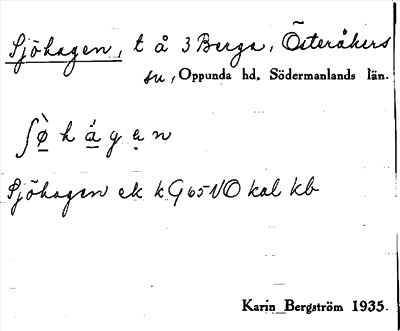 Sjöhagen, t å 3 Berga, Österåkers
sn, Oppunda hd. Södermanlands län.
ʃø̀ h á g e n
Sjöhagen ek k G 65 VO kal kb
Karin Bergström 1935.